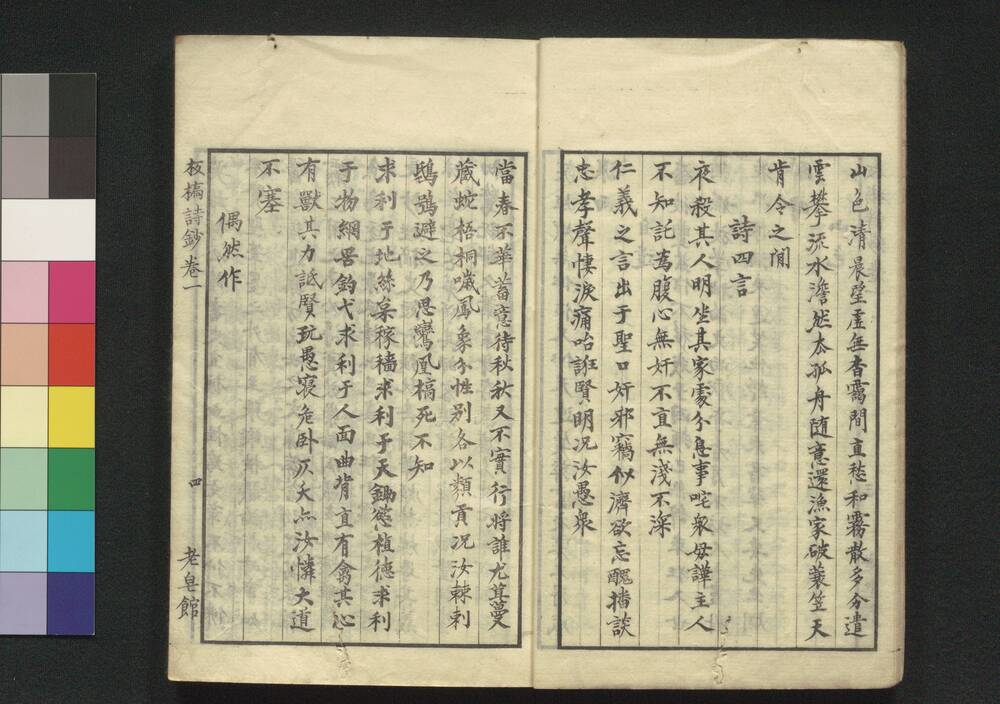 山色清晨望虛無杳靄間直愁和霧散多分遣
雲攀流水澹然太孤舟随意還漁家破蓑笠天
肯令之閒
詩四言
夜殺其人明坐其家處分息事咤衆毋譁主人
不知託為腹心無奸不直無淺不深
仁義之言出于聖口奸邪竊似濟欲忘醜播談
忠孝聲悽淚痛哈誑賢明况汝愚衆
當春不華蓄意待秋秋又不實行将誰尤茸蔓
藏蛇梧桐噦鳳象分性别各以類貢况汝棘刺
鴟鴞避之乃思鸞凰槁死不知
求利于地絲枲稼穡求利于天鋤慾植德求利
于物網罟釣弋求利于人面曲背直有禽其心
有獸其力詆賢玩愚寢危卧仄夭亦汝憐大道
不塞
偶然作
板橋詩鈔卷一
四
老皂館